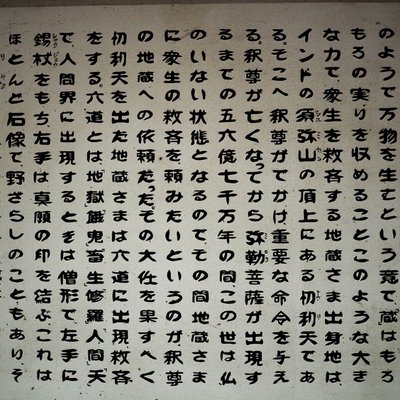 のようで万物を生ずという意で蔵はもろ
もろの実りを収めることこのような大き
な力で衆生を救済する地蔵さま出身地は
インドの須弥山の頂上にある忉利天であ
る。そこへ釈尊がでかけ重要な命令を与え
る。釈尊が亡くなってから弥勒菩薩が出現す
るまでの五六億七千万年の間この世は仏
のいない状態となるのでその間地蔵さま
に衆生の救済を頼みたいというのが釈尊
の地蔵への依頼だった。その大任を果すべく
忉利天を出た地蔵さまは六道に出現救済
をする。六道とは地獄餓鬼畜生修羅人間天
で人間界に出現するときは僧形で左手に
錫杖をもち右手は真願の印を結ぶこれは
ほとんど石像で野ざらしのこともありそ